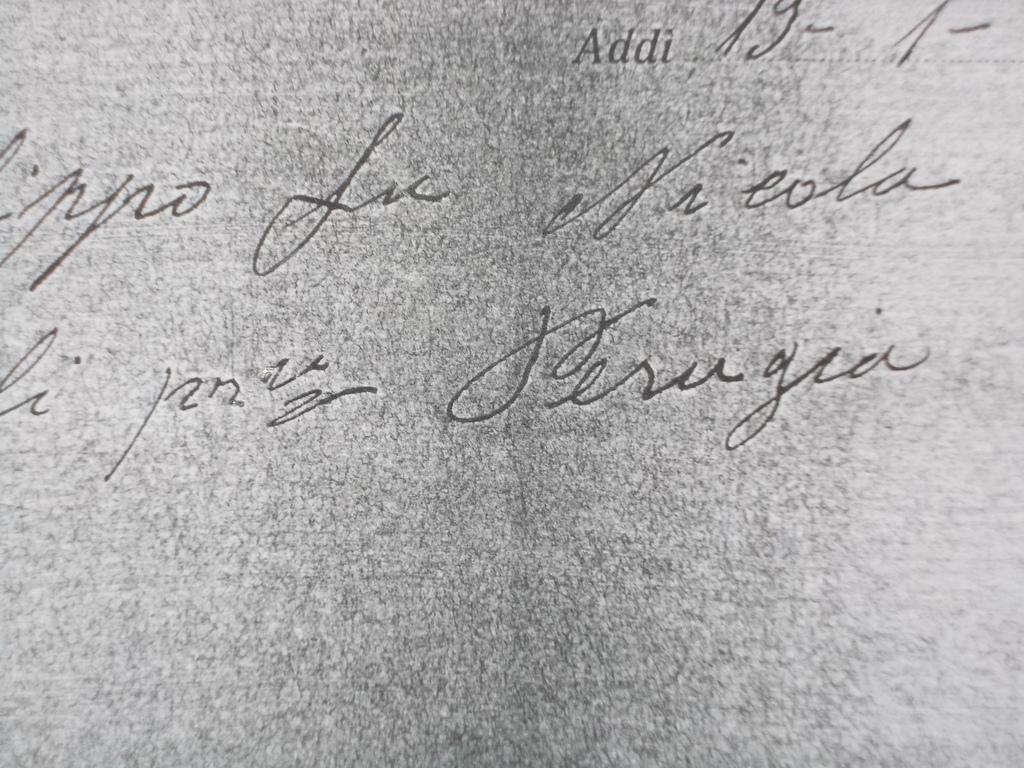 Addì 19- 1-
ippo fu Nicola
li Perugia